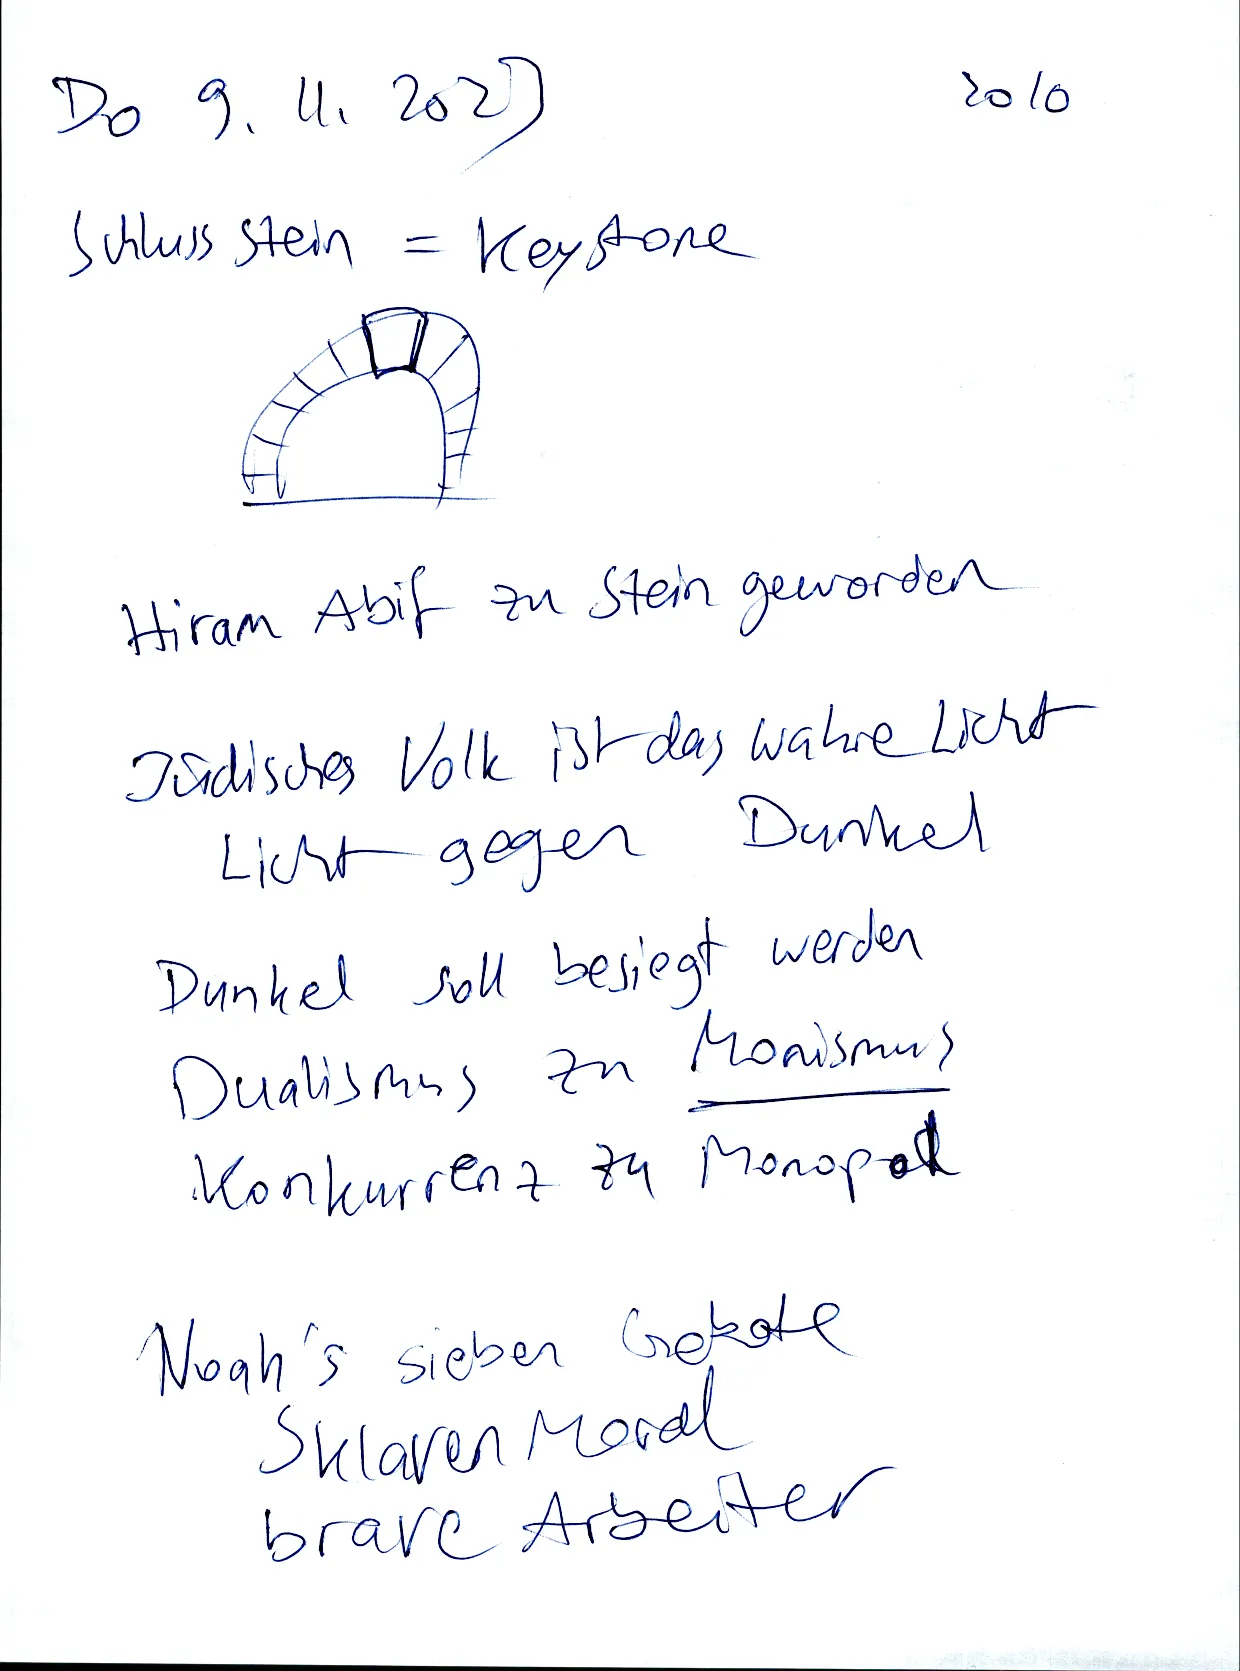 Do 9. 11. 2023
2010
Schluss stein = Keystone
Hiram Abif zu Stein geworden
Jüdisches Volk ist das wahre Licht
Licht gegen Dunkel
Dunkel soll besiegt werden
Dualismus zu Monismus
Konkurrenz zu Monopol
Noah's sieben Gebote
Sklaven Moral
brave Arbeiter